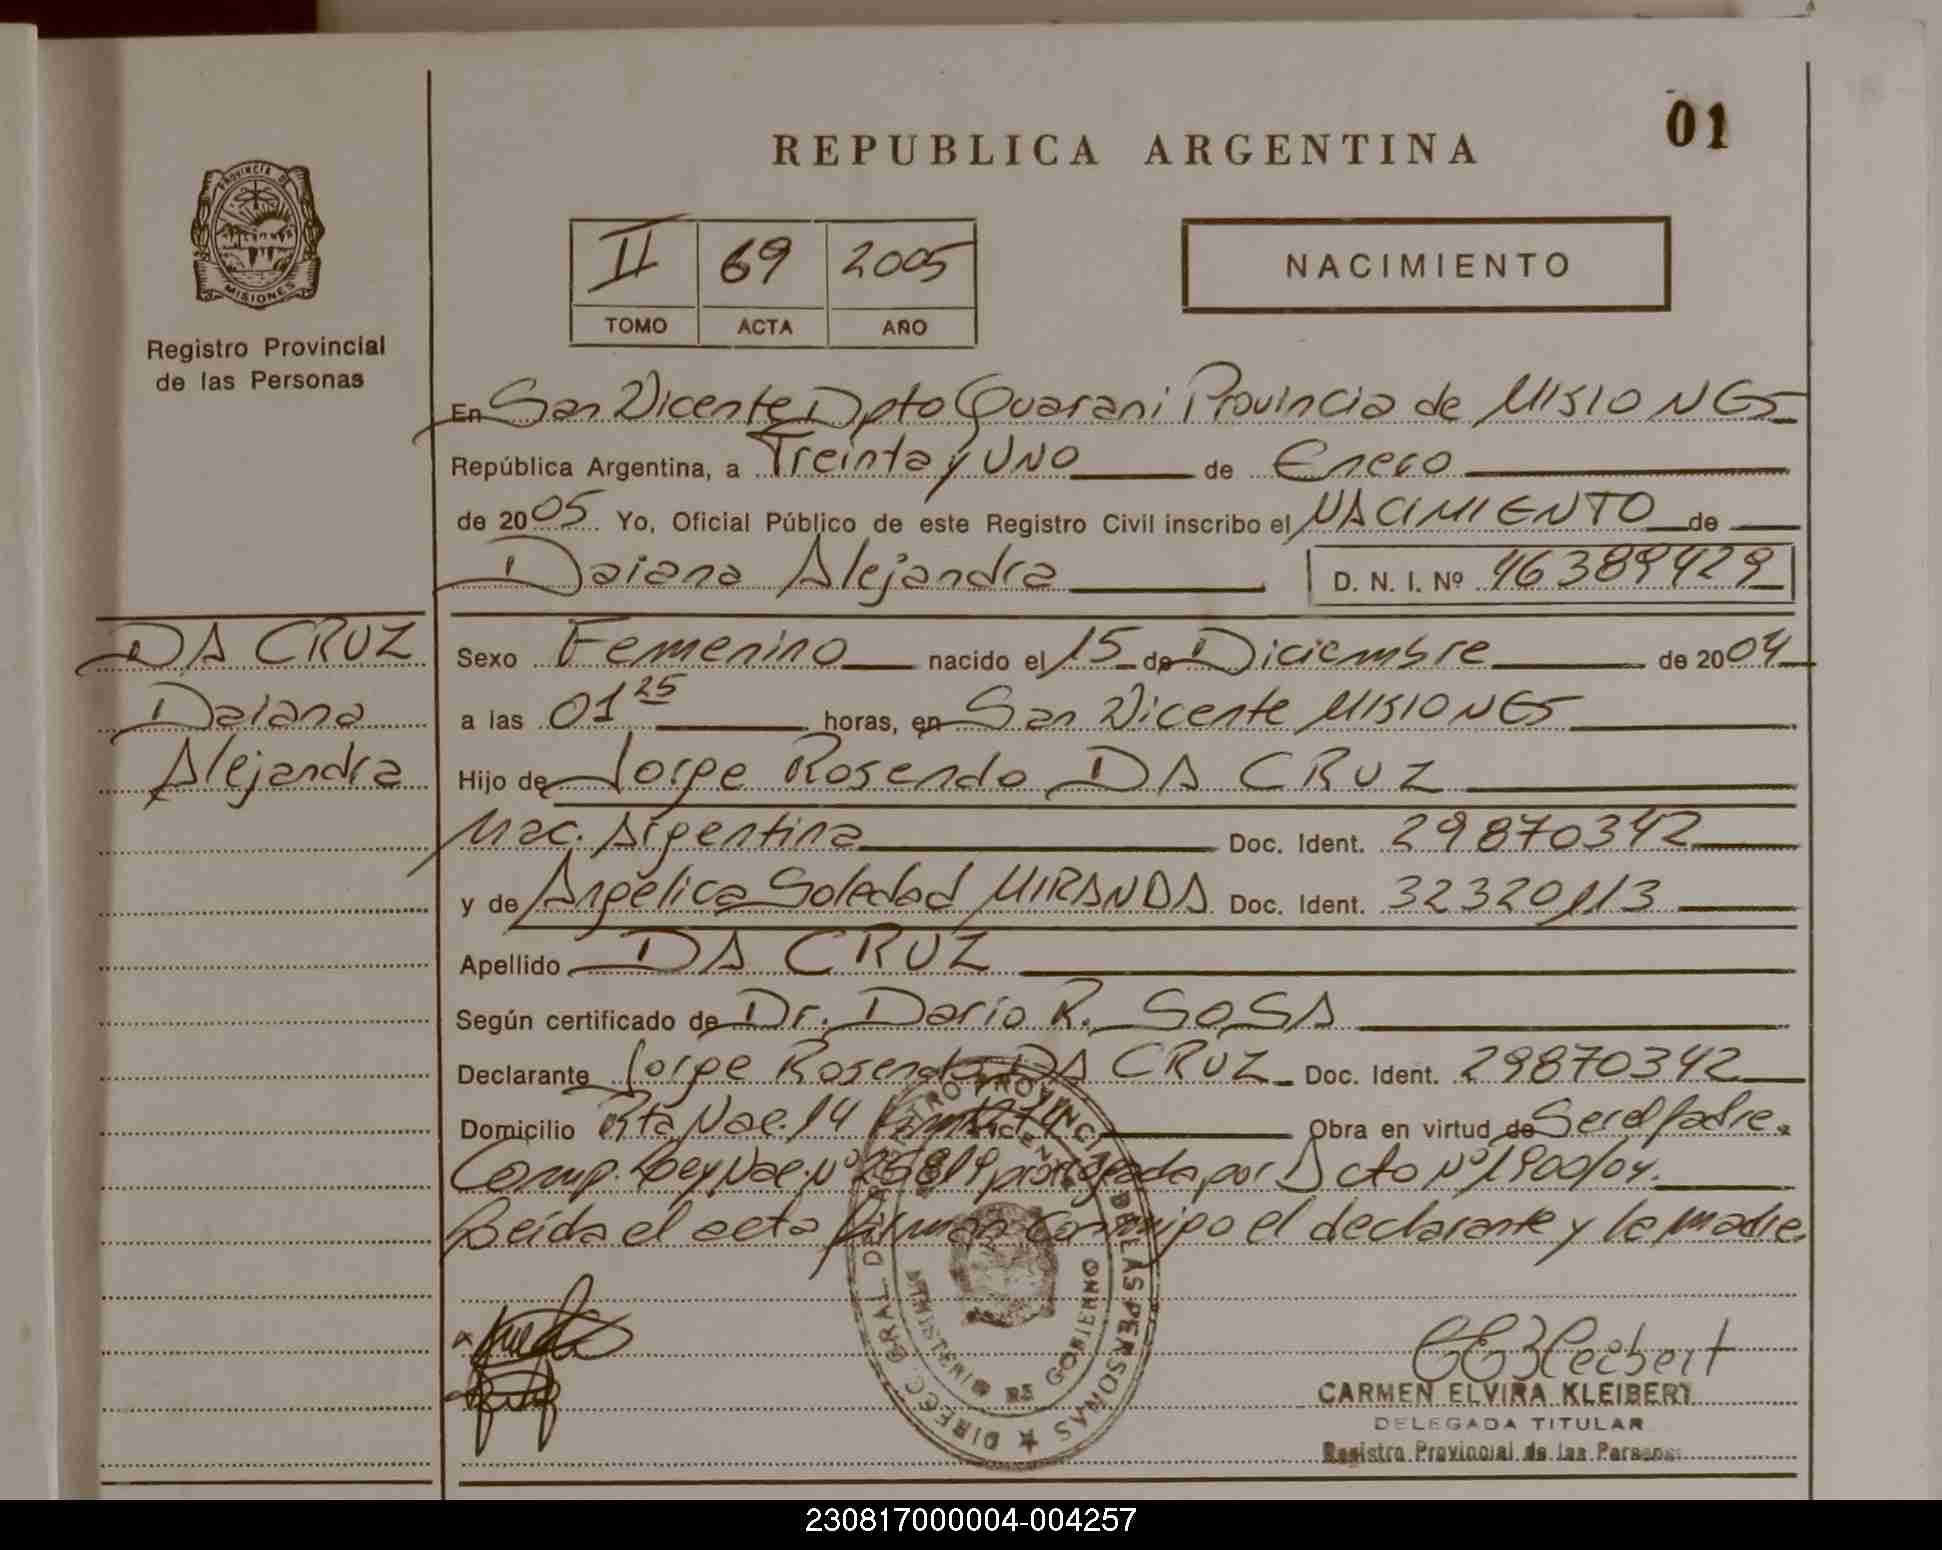 01
REPUBLICA ARGENTINA
PROVINCIA DE
MISIONES
Registro Provincial
de las Personas
II 69 2005
TOMO ACTA AÑO
NACIMIENTO
En San Vicente Dpto Guarani Provincia de MISIONES
República Argentina, a Treinta y UNO de Enero
de 2005 Yo, Oficial Público de este Registro Civil inscribo el NACIMIENTO de
Daiana Alejandra D. N. I. Nº 46389429
DA CRUZ
Daiana
Alejandra
Sexo Femenino nacido el 15 de Diciembre de 2004
a las 01 25 horas, en San Vicente MISIONES
Hijo de Jorge Rosendo DA CRUZ
Nac. Argentina Doc. Ident. 29870342
y de Angelica Soledad MIRANDA Doc. Ident. 32320113
Apellido DA CRUZ
Según certificado de Dr. Darío R. SOSA
Declarante Jorge Rosendo DA CRUZ Doc. Ident. 29870342
Domicilio Rta Nac. 14 Obra en virtud de Ser el padre.
Comp. Ley Nac. Nº 25819 prorrogada por Dcto Nº 1900/04.
Leída el acta firman conmigo el declarante y la madre.
DIRECC. GRAL. DEL REGISTRO PROVINCIAL DE LAS PERSONAS
MINISTERIO DE GOBIERNO
CEKleibert
CARMEN ELVIRA KLEIBERT
DELEGADA TITULAR
Registro Provincial de las Personas
230817000004-004257